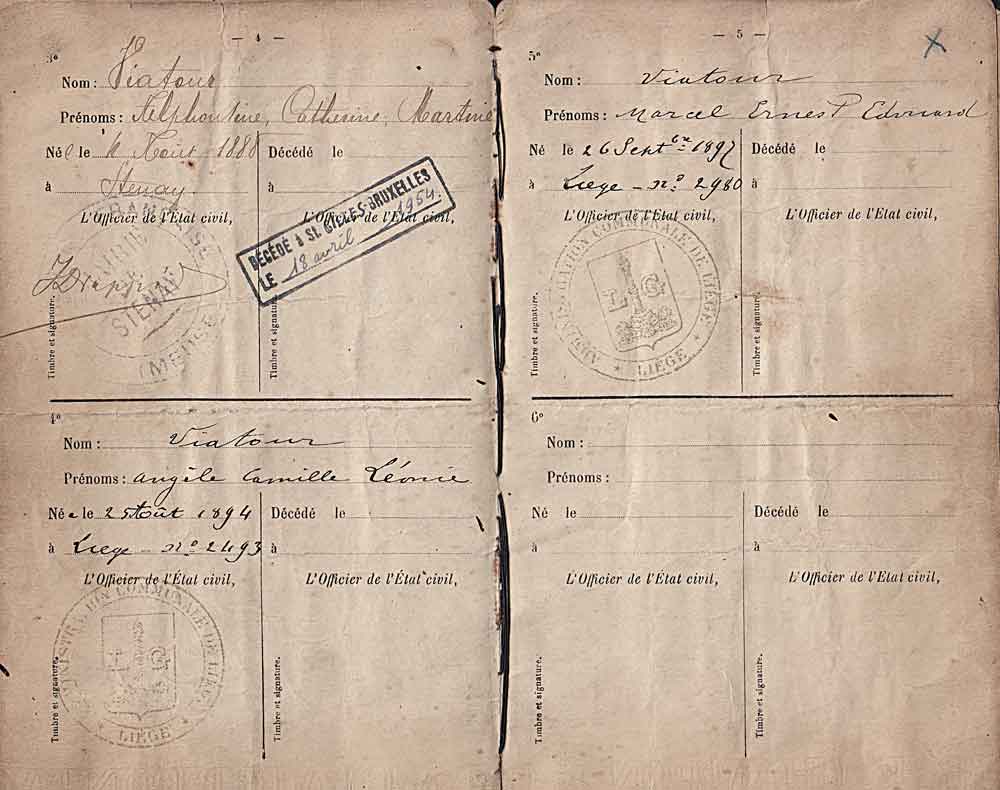 — 4 —
3°
Nom : Viatour
Prénoms : Alphontine, Catherine, Martine
Née le 4 Août 1888
à Stenay
Décédé le
à
L'Officier de l'État civil,
L'Officier de l'État civil,
DÉCÉDÉ À St. GILLES-BRUXELLES
LE 18 avril 1954.
STENAY
(MEUSE)
Timbre et signature.
Timbre et signature.
4°
Nom : Viatour
Prénoms : Angèle Camille Léonie
Née le 2 Août 1894
à Liege - n° 2493
Décédé le
à
L'Officier de l'État civil,
L'Officier de l'État civil,
ADMINISTRATION COMMUNALE DE LIÉGE
L G
* LIÉGE *
Timbre et signature.
Timbre et signature.
— 5 —
5°
Nom : Viatour
Prénoms : Marcel Ernest Edouard
Né le 26 Sept bre 1897
à Liege - n° 2980
Décédé le
à
L'Officier de l'État civil,
L'Officier de l'État civil,
ADMINISTRATION COMMUNALE DE LIÉGE
L G
* LIÉGE *
Timbre et signature.
Timbre et signature.
6°
Nom :
Prénoms :
Né le
à
Décédé le
à
L'Officier de l'État civil,
L'Officier de l'État civil,
Timbre et signature.
Timbre et signature.